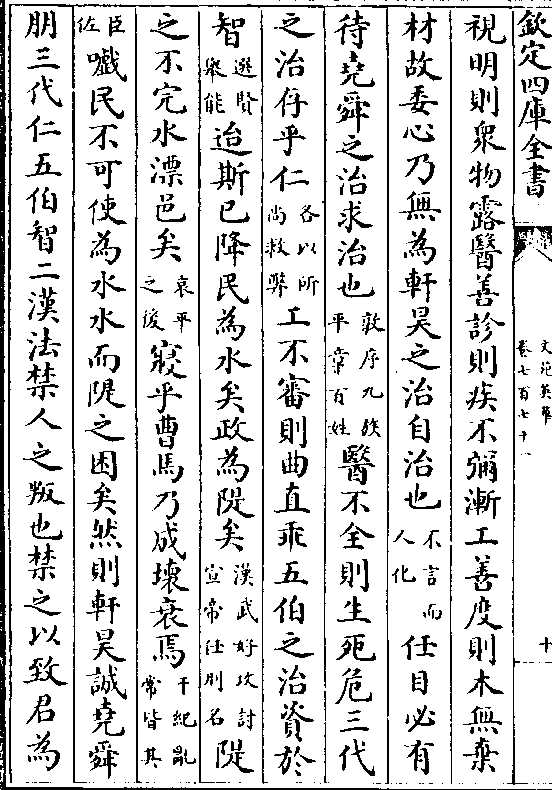 欽定四庫全書 文苑英華 卷七百七十一 十
視明則衆物露醫善診則疾不彌漸工善度則木無棄
材故委心乃無為軒昊之治自治也不言而人化任目必有
待堯舜之治求治也敦序九族平章百姓醫不全則生死危三代
之治存乎仁各以所尚救弊工不審則曲直乖五伯之治資於
智選賢舉能迨斯已降民為水矣政為隄矣漢武好攻討宣帝任刑名隄
之不完水漂邑矣哀平之後寢乎曹馬乃成壞衰焉干紀亂常皆其
臣佐嚱民不可使為水水而隄之困矣然則軒昊誠堯舜
朋三代仁五伯智二漢法禁人之叛也禁之以致君為